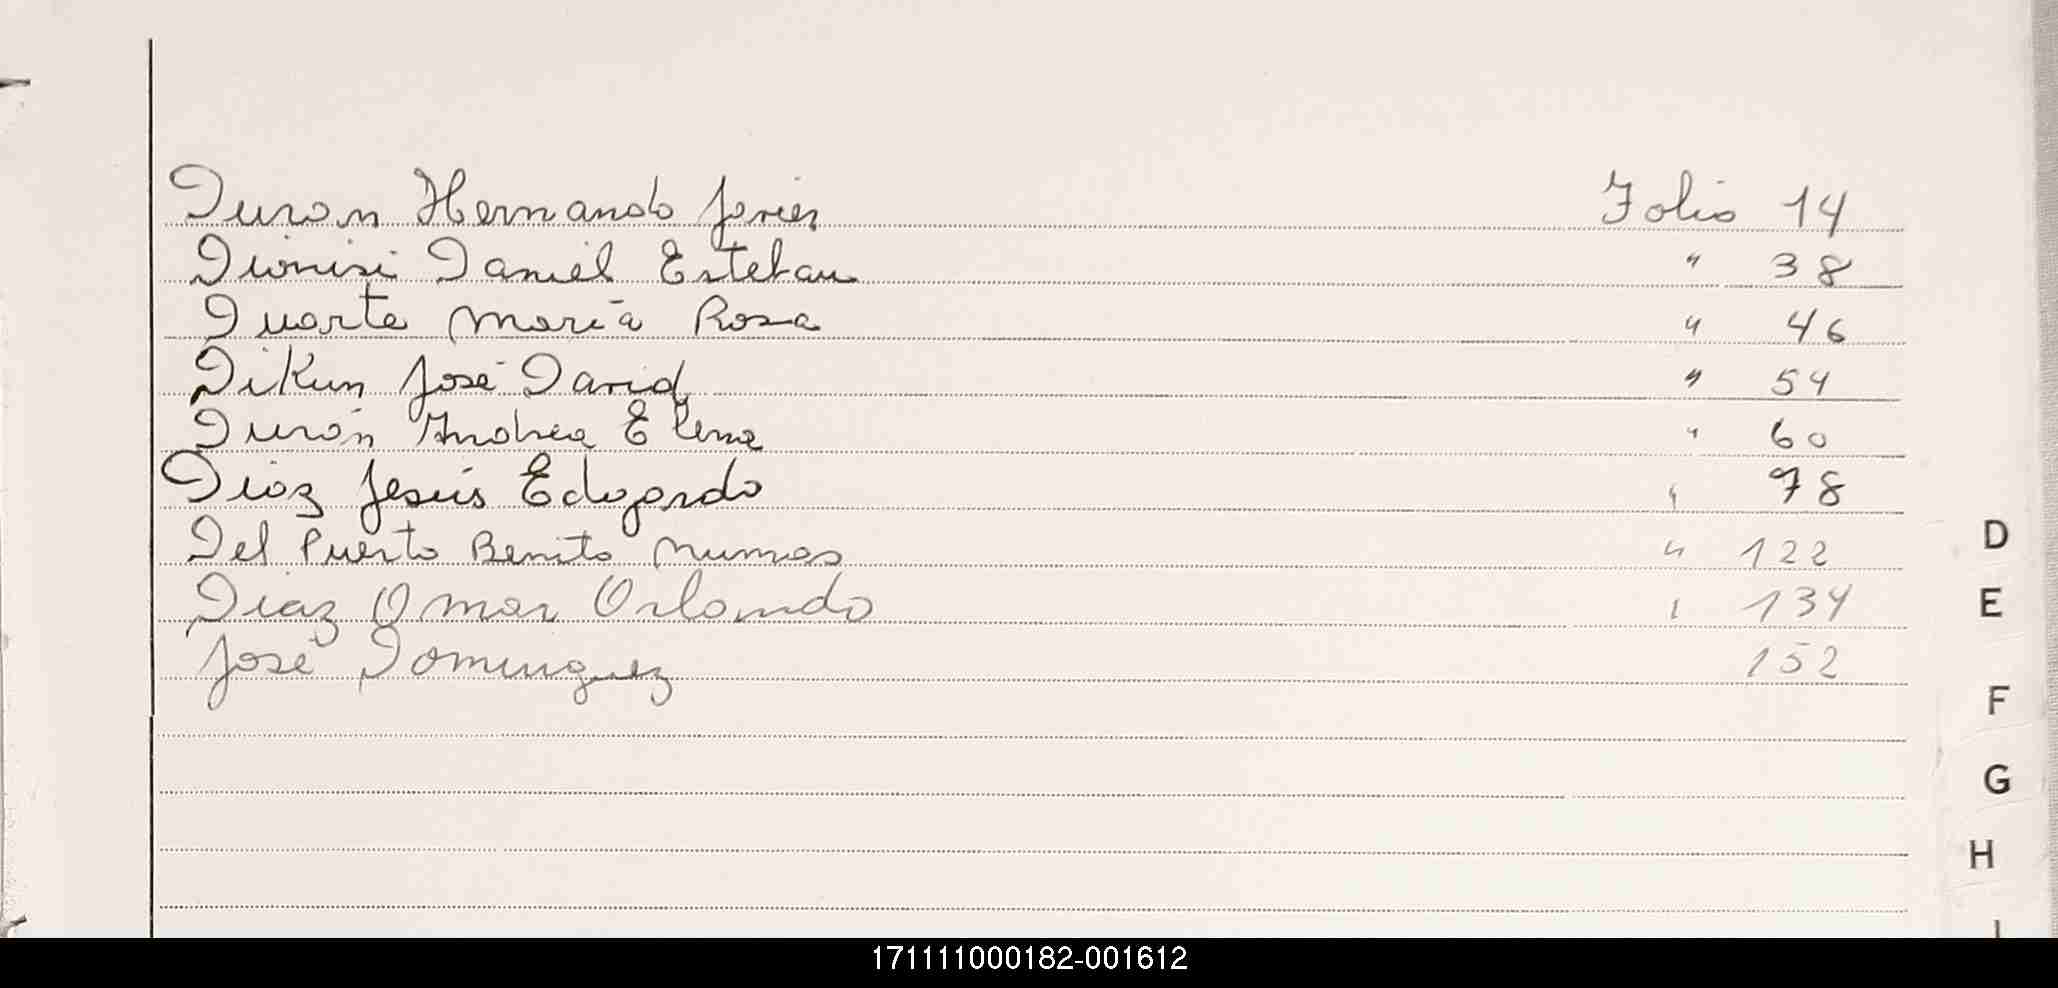 Duron Hernando Javier Folio 14
Dionisi Daniel Esteban " 38
Duarte Maria Rosa " 46
Dikun José David " 54
Durón Andrea Elena " 60
Diaz Jesús Edgardo " 78
Del Puerto Benito " 122
Diaz Omar Orlando " 134
José Dominguez 152
D
E
F
G
H
I
171111000182-001612